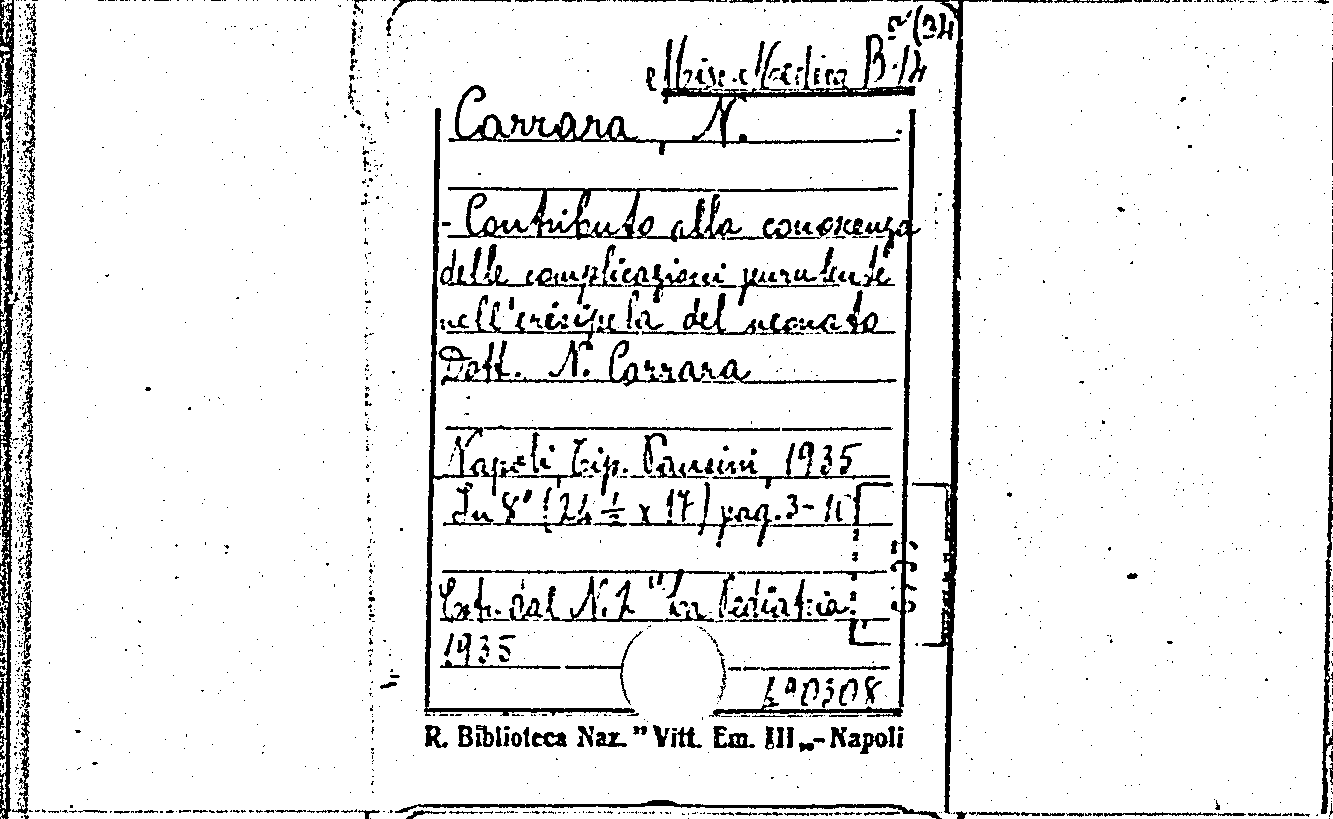 Misc. Medica B.14
Carrara N.
- Contributo alla conoscenza
delle complicazioni purulente
nell'eresipela del neonato
Dott. N. Carrara
Napoli Tip. Pansini 1935
In 8° (24 ½ x 17) pag. 3-11
Estr. dal N. 2 "La Pediatria
1935
490308
R. Biblioteca Naz. " Vitt. Em. III „ - Napoli